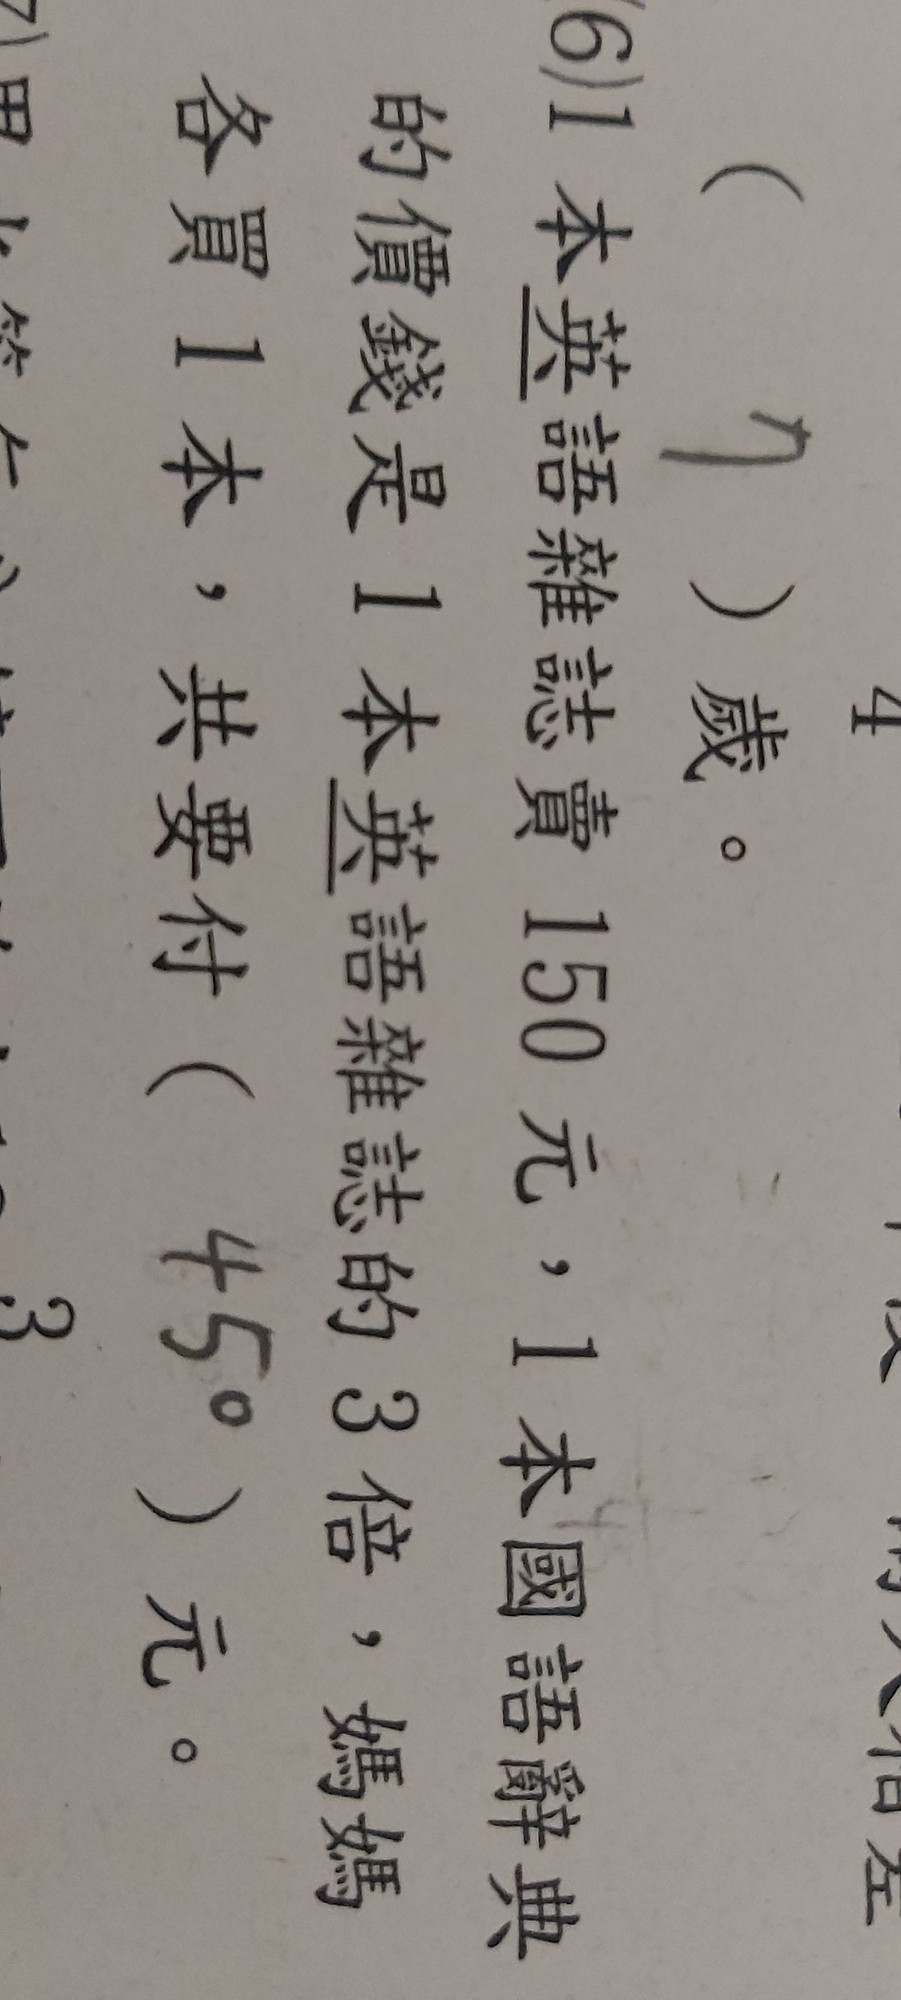 4
( 7 )歲。
(6)1本英語雜誌賣150元，1本國語辭典
的價錢是1本英語雜誌的3倍，媽媽
各買1本，共要付( 450 )元。
3